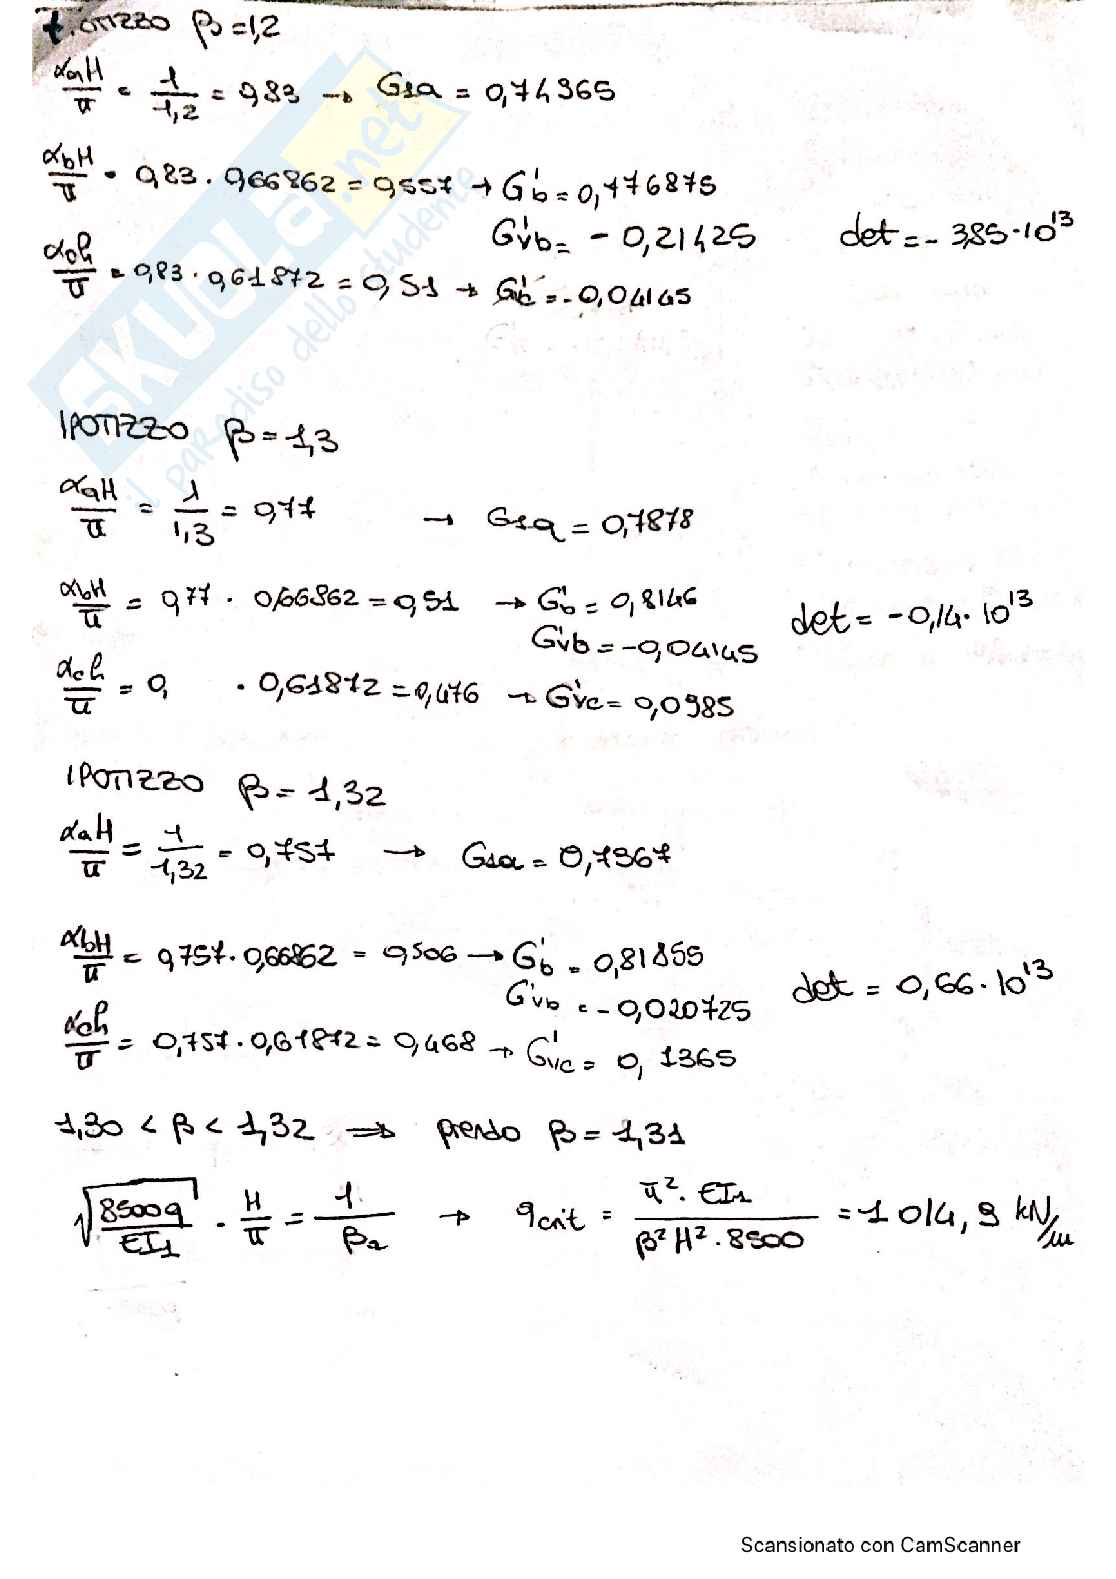 IPOTIZZO β=1,2
αaH/π = 1/1,2 = 0,83 → G1a = 0,74365
αbH/π = 0,83 · 0,66862 = 0,557 → G'b = 0,776875
G'vb = - 0,21425
det = - 3,85·10^13
αch/π = 0,83 · 0,61872 = 0,51 → G'vc = -0,04145
IPOTIZZO β = 1,3
αaH/π = 1/1,3 = 0,77 → G1a = 0,7878
αbH/π = 0,77 · 0,66862 = 0,51 → G'b = 0,8146
G'vb = -0,04145
det = -0,14· 10^13
αch/π = 0, · 0,61872 = 0,476 → G'vc = 0,0985
IPOTIZZO β = 1,32
αaH/π = 1/1,32 = 0,757 → G1a = 0,7967
αbH/π = 0,757·0,66862 = 0,506 → G'b = 0,81855
G'vb = -0,020725
det = 0,66·10^13
αch/π = 0,757·0,61872 = 0,468 → G'vc = 0,1365
1,30 < β < 1,32 ⇒ prendo β = 1,31
√(8500q/EI1) · H/π = 1/βa → qcrit = π²·EI1/(β²H²·8500) = 1014,9 kN/m
SKUOLA.net
il paradiso dello studente
Scansionato con CamScanner